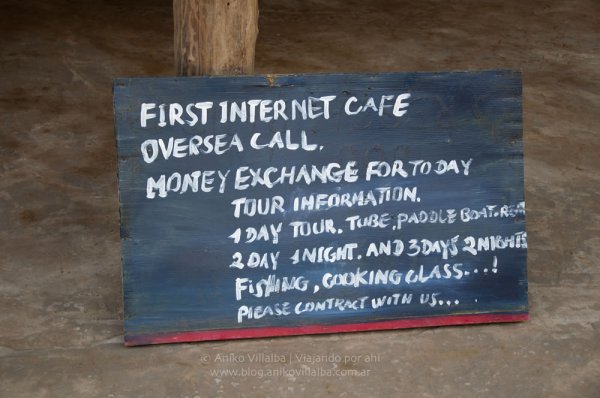 FIRST INTERNET CAFE
OVERSEA CALL.
MONEY EXCHANGE FOR TODAY
TOUR INFORMATION.
1 DAY TOUR. TUBE, PADDLE BOAT. RENT
2 DAY 1 NIGHT. AND 3 DAYS 2 NIGHTS
FISHING, COOKING CLASS...!
PLEASE CONTRACT WITH US...
© Aniko Villalba | Viajando por ahí
www.blog.anikovillalba.com.ar